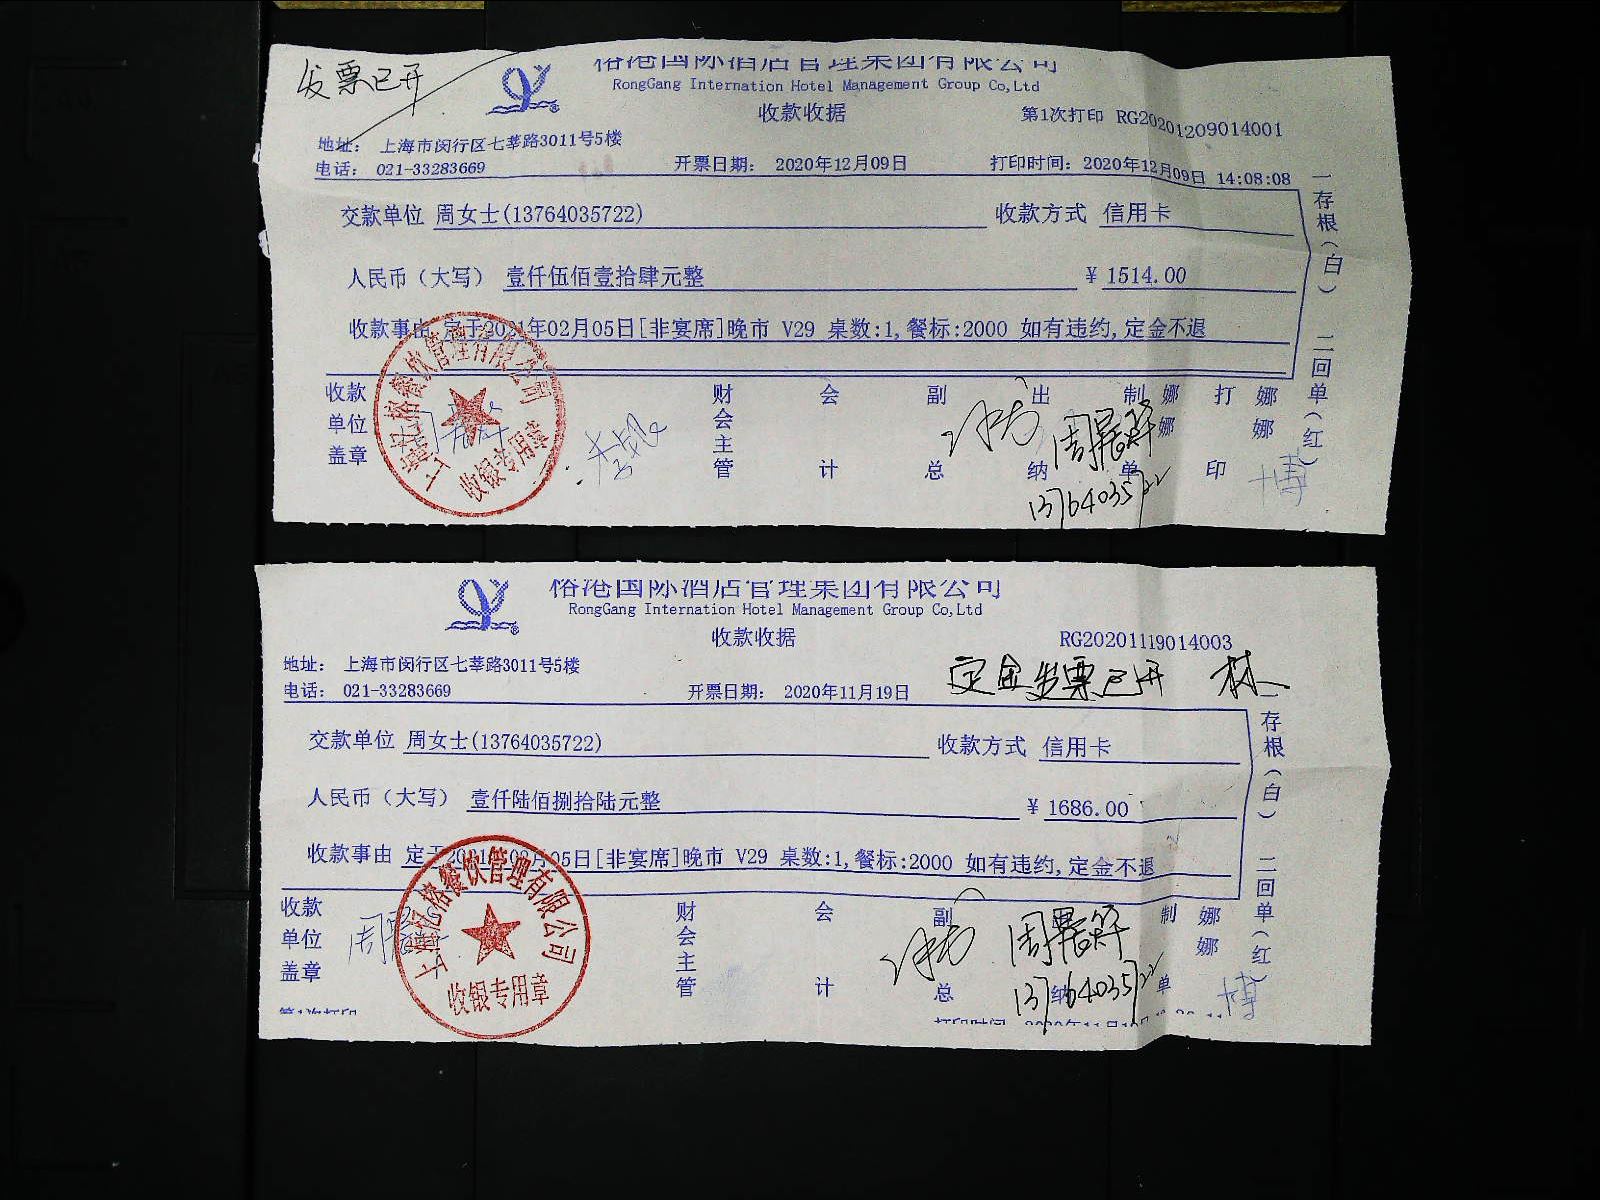 发票已开
榕港国际酒店管理集团有限公司
RongGang Internation Hotel Management Group Co,Ltd
收款收据
第1次打印 RG20201209014001
地址： 上海市闵行区七莘路3011号5楼
电话： 021-33283669 开票日期： 2020年12月09日 打印时间：2020年12月09日 14:08:08
交款单位 周女士(13764035722) 收款方式 信用卡
人民币（大写） 壹仟伍佰壹拾肆元整 ￥1514.00
收款事由 定于2021年02月05日[非宴席]晚市 V29 桌数:1,餐标:2000 如有违约,定金不退
一存根（白） 二回单（红）
收款单位盖章 财会主管 会计 副总 出纳 制单 娜娜 打印 娜娜
上海亿榕餐饮管理有限公司
收银专用章
13764035722
榕港国际酒店管理集团有限公司
RongGang Internation Hotel Management Group Co,Ltd
收款收据
RG20201119014003
地址： 上海市闵行区七莘路3011号5楼
定金发票已开 林
电话： 021-33283669 开票日期： 2020年11月19日
交款单位 周女士(13764035722) 收款方式 信用卡
人民币（大写） 壹仟陆佰捌拾陆元整 ￥1686.00
收款事由 定于2021年02月05日[非宴席]晚市 V29 桌数:1,餐标:2000 如有违约,定金不退
一存根（白） 二回单（红）
收款单位盖章 财会主管 会计 副总 纳 制单 娜娜
上海亿榕餐饮管理有限公司
收银专用章
13764035722
第1次打印